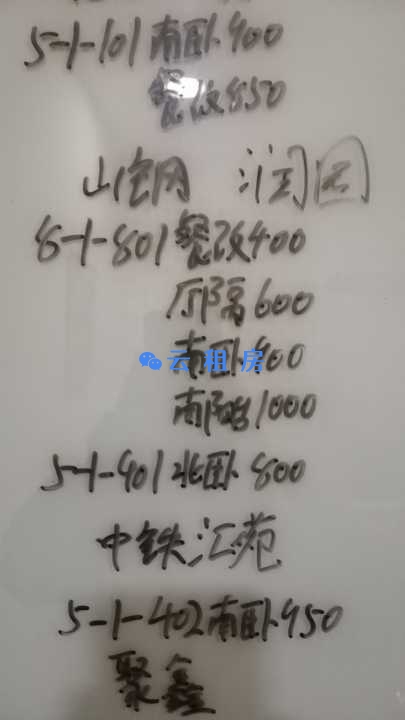 5-1-101南卧900
餐改850
山水官网 润园
8-1-801餐改400
厅隔600
云租房
南卧800
南隔1000
5-1-901北卧800
中铁汇苑
5-1-402南卧950
聚鑫